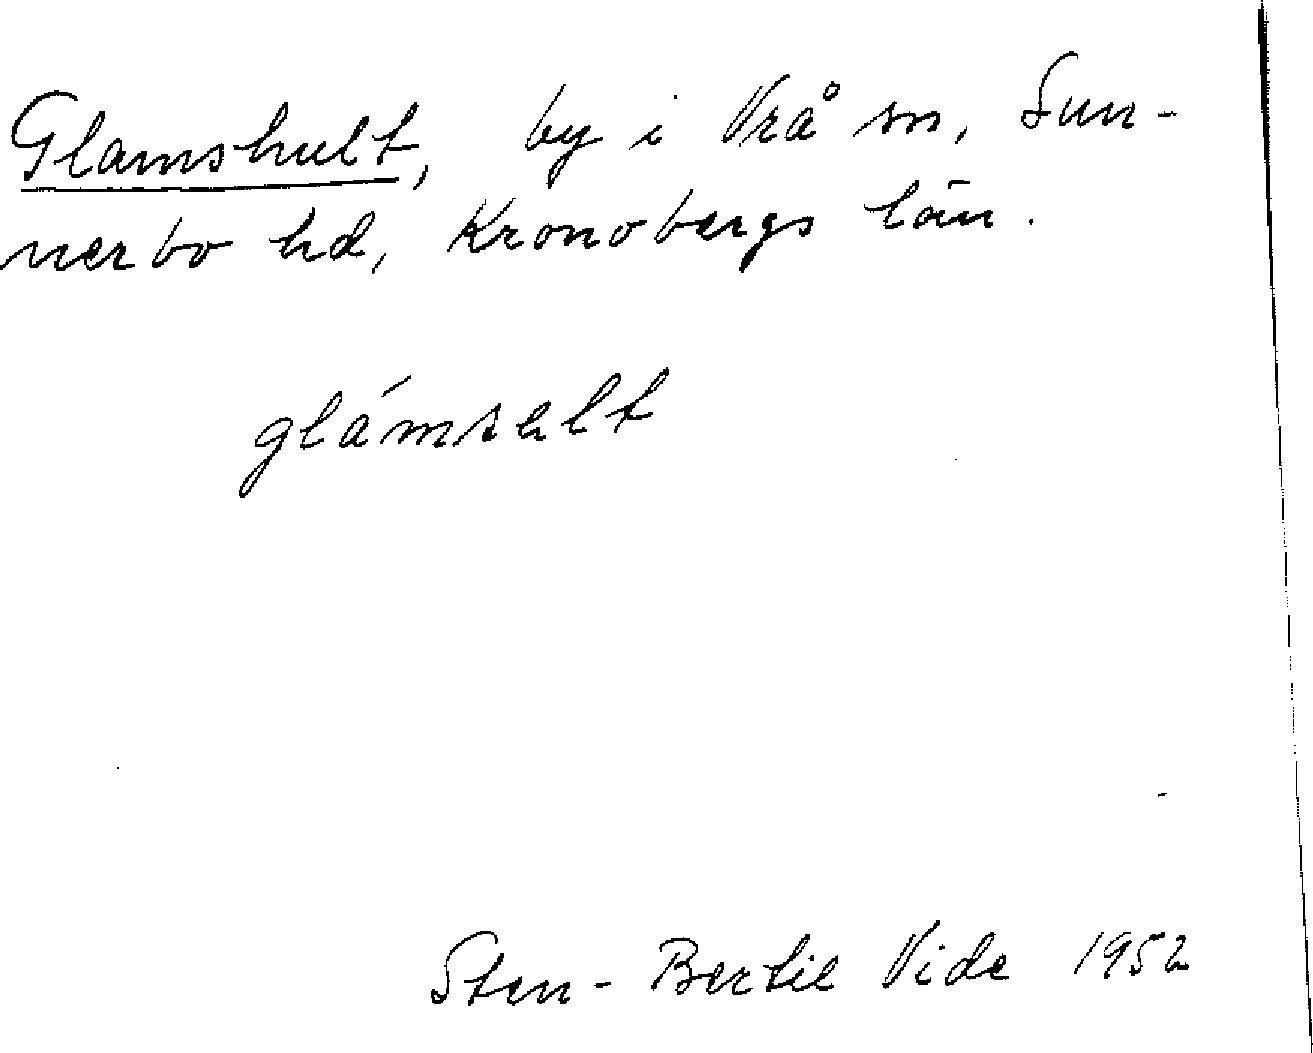 Glamshult, by i Vrå sn, Sun-
nerbo hd, Kronobergs län.
glámsɐlt
Sten-Bertil Vide 1952